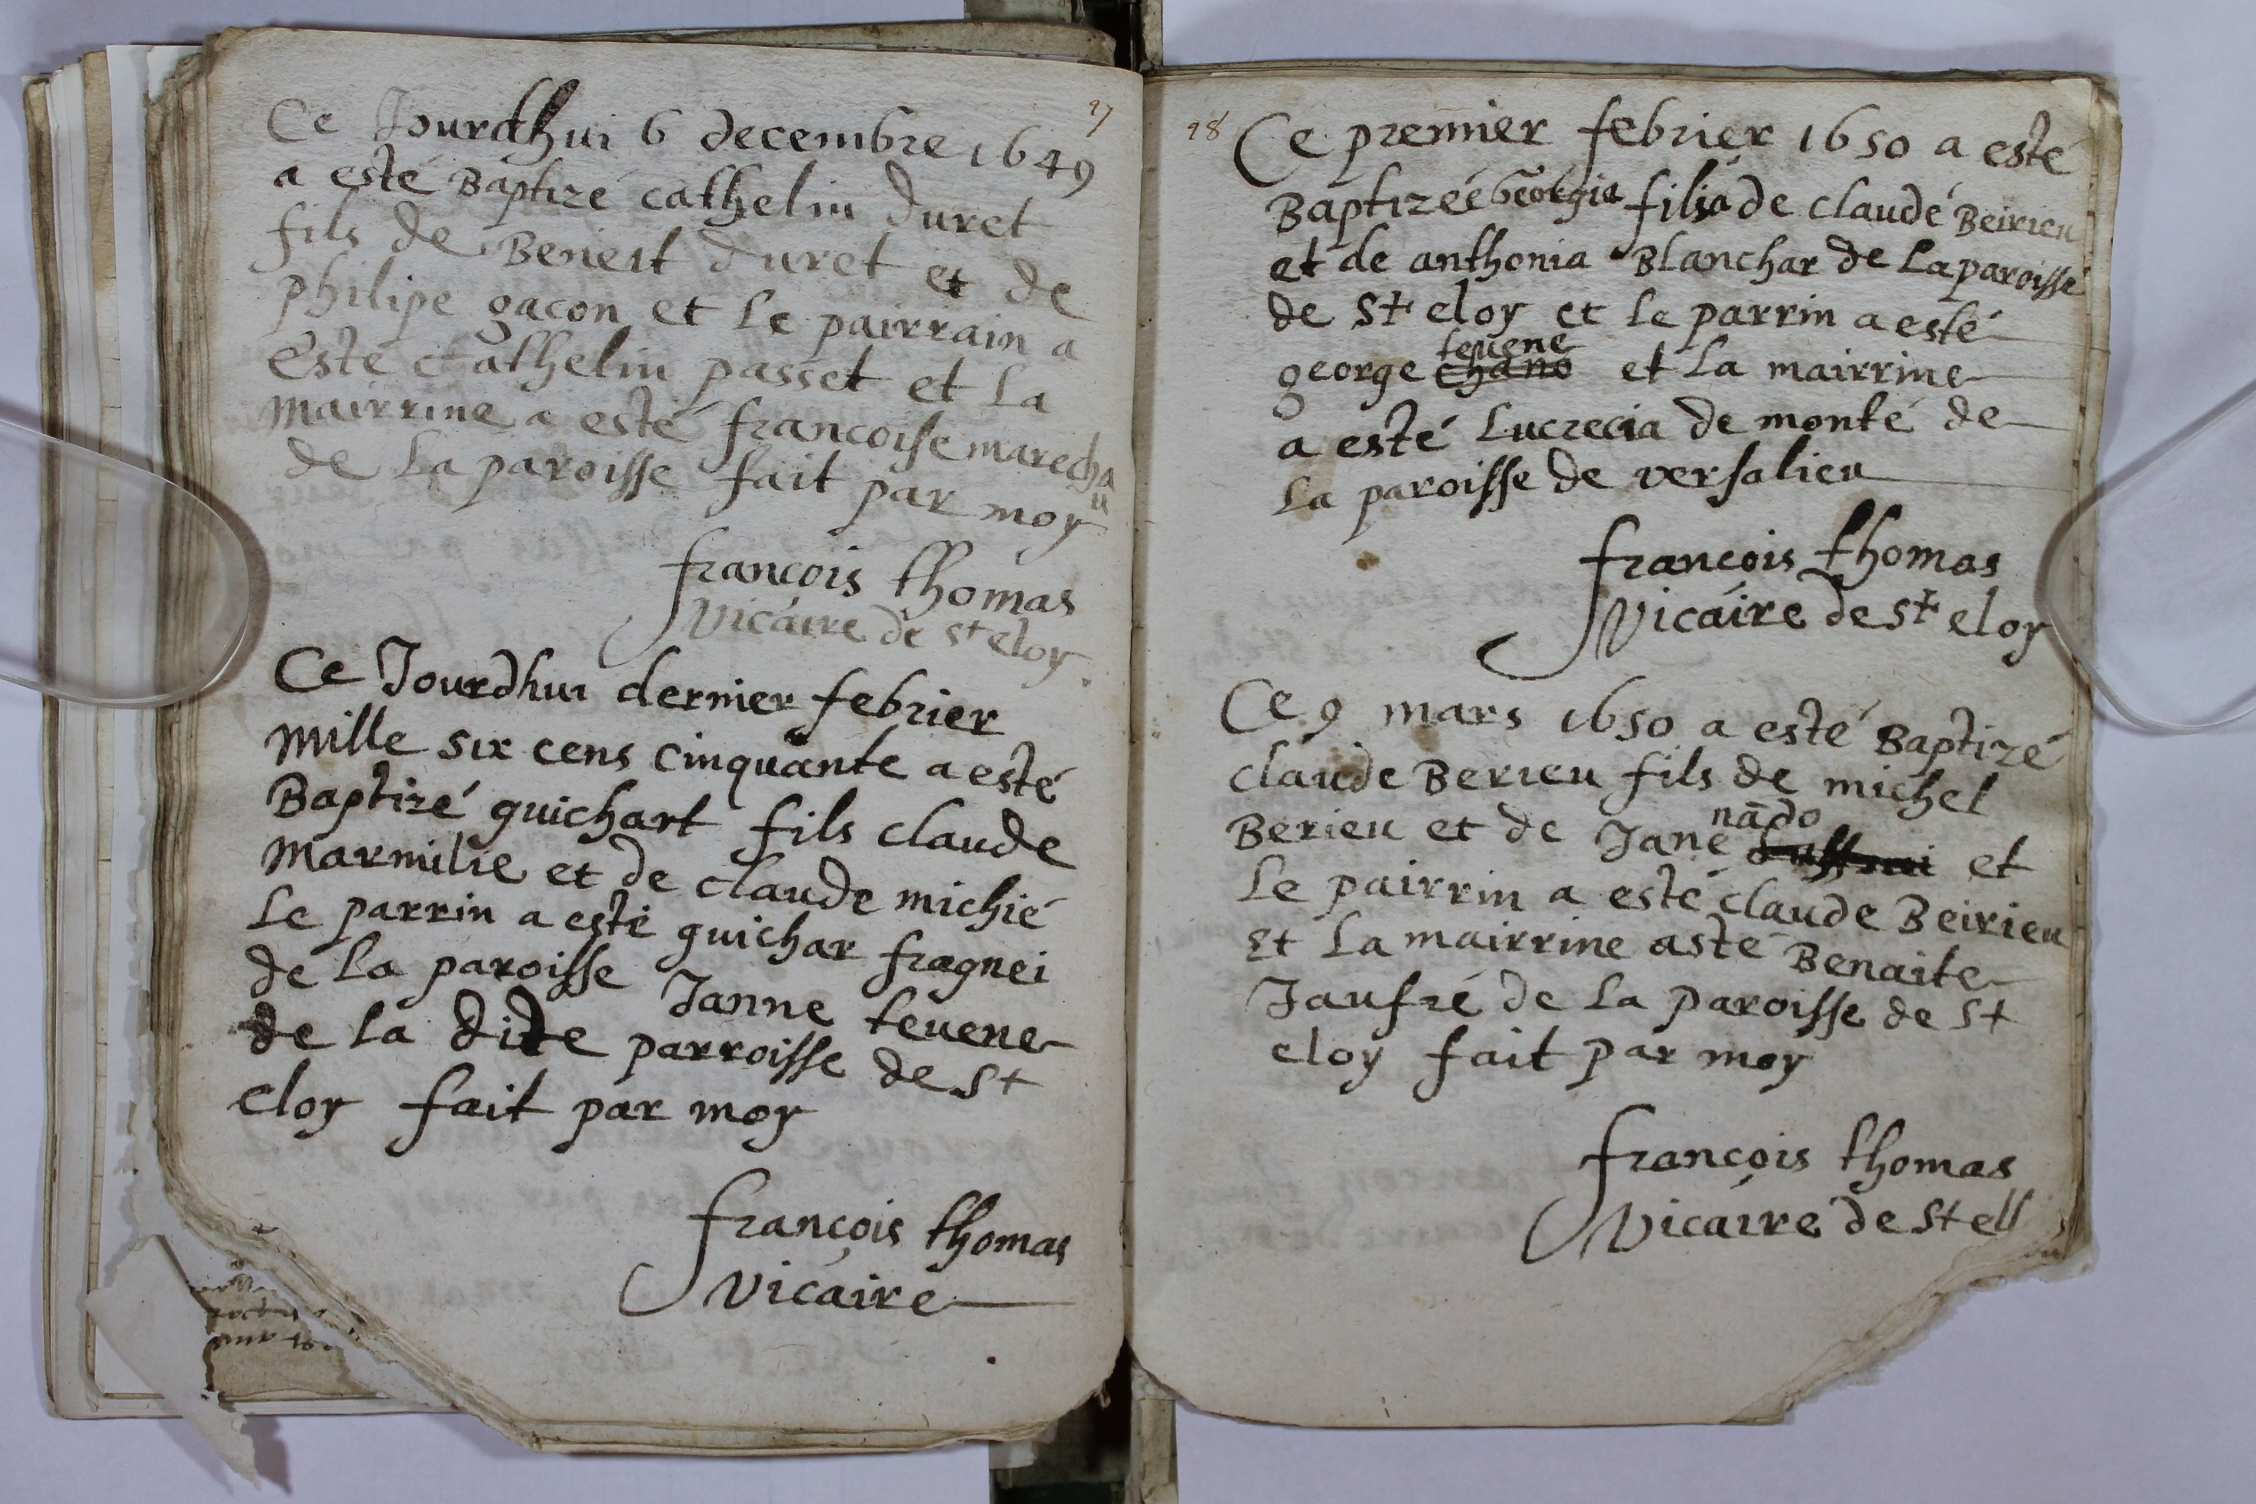 97
Ce Jourdhui 6 decembre 1649
a esté Baptizé cathelin duret
fils de Beneit duret et de
philipe gacon et Le pairrain a
Este Cathelin passet et La
mairrine a esté francoise marechau
de La paroisse fait par moy
françois thomas
vicaire de St eloy
Ce Jourdhui dernier febrier
mille six cens cinquante a esté
Baptizé guichart fils claude
Marmilie et de claude michié
Le parrin a esté guichar fragnei
de La paroisse Janne tevene
de la dite parroisse de St
eloy fait par moy
françois thomas
vicaire
98
Ce premier febrier 1650 a esté
Baptizée Georgia filia de claude Beirieu
et de anthonia Blanchar de La paroisse
de St eloy et Le parrin a esté
tevene
george chano et La mairrine
a esté Lucrecia de monté de
La paroisse de versalieu
françois thomas
vicaire de St eloy
Ce 9 mars 1650 a esté Baptizé
claude Berieu fils de michel
nãdo
Berieu et de Jane et
Le pairrin a esté claude Beirieu
et La mairrine asté Benaite
Jaufré de La paroisse de St
eloy fait par moy
françois thomas
vicaire de St ell